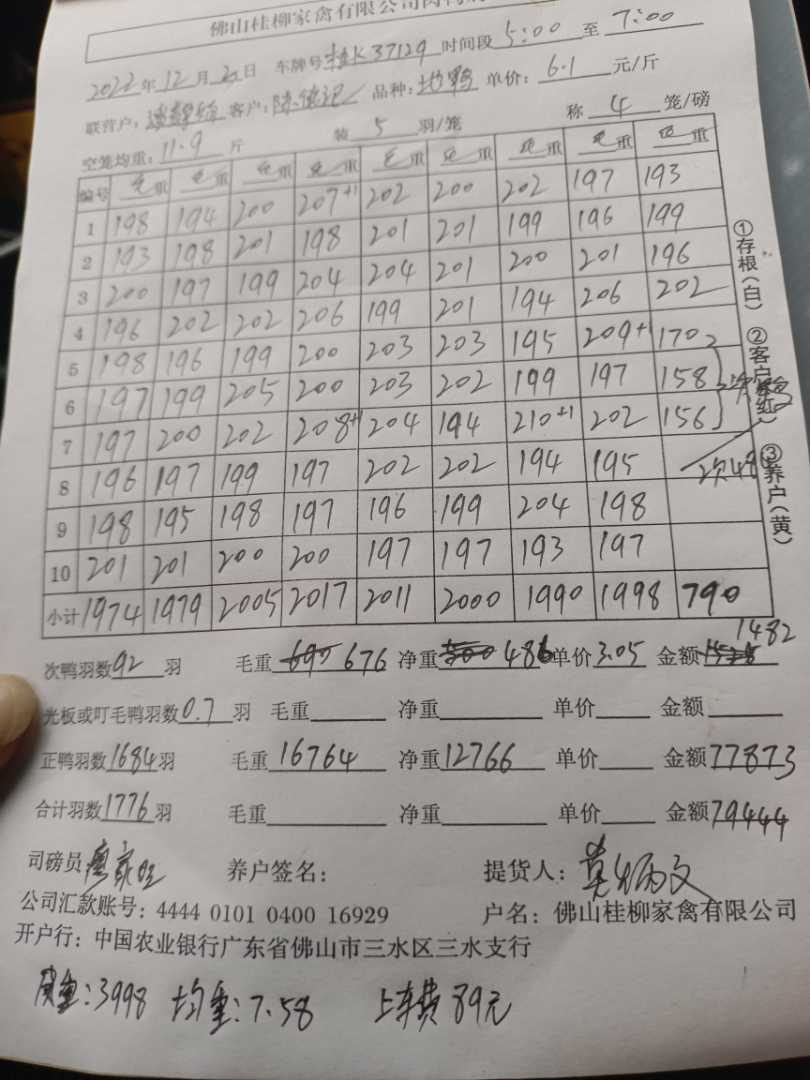 佛山桂柳家禽有限公司肉鸭
2022年12月2日 车牌号桂K37129时间段5:00至7:00
联营户: 客户:陈德记 品种:土鸭 单价:6.1元/斤
空笼均重:11.9斤 装5羽/笼 称4笼/磅
编号 毛重 毛重 毛重 毛重 毛重 毛重 毛重 毛重 毛重
1 198 194 200 207+1 202 200 202 197 193
2 193 198 201 198 201 201 199 196 199
3 200 197 199 204 204 201 200 201 196
4 196 202 202 206 199 201 194 206 202
5 198 196 199 200 203 203 195 209+1 170
6 197 199 205 200 203 202 199 197 158
7 197 200 202 208+1 204 194 210+1 202 156
8 196 197 199 197 202 202 194 195
9 198 195 198 197 196 199 204 198
10 201 201 200 200 197 197 193 197
小计 1974 1979 2005 2017 2011 2000 1990 1998 790
①存根(白) ②客户(红) ③养户(黄)
次鸭羽数92羽 毛重690 676 净重500 486 单价3.05 金额1482
光板或叮毛鸭羽数0.7羽 毛重 净重 单价 金额
正鸭羽数1684羽 毛重16764 净重12766 单价 金额77873
合计羽数1776羽 毛重 净重 单价 金额79444
司磅员廖家旺 养户签名: 提货人:莫炳文
公司汇款账号:4444 0101 0400 16929 户名:佛山桂柳家禽有限公司
开户行:中国农业银行广东省佛山市三水区三水支行
皮重:3998 均重:7.58 上车费89元